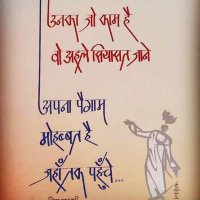 उनका जो काम है
वो अहले सियासत जाने
अपना पैग़ाम
मोहब्बत है
जहाँ तक पहुँचे...